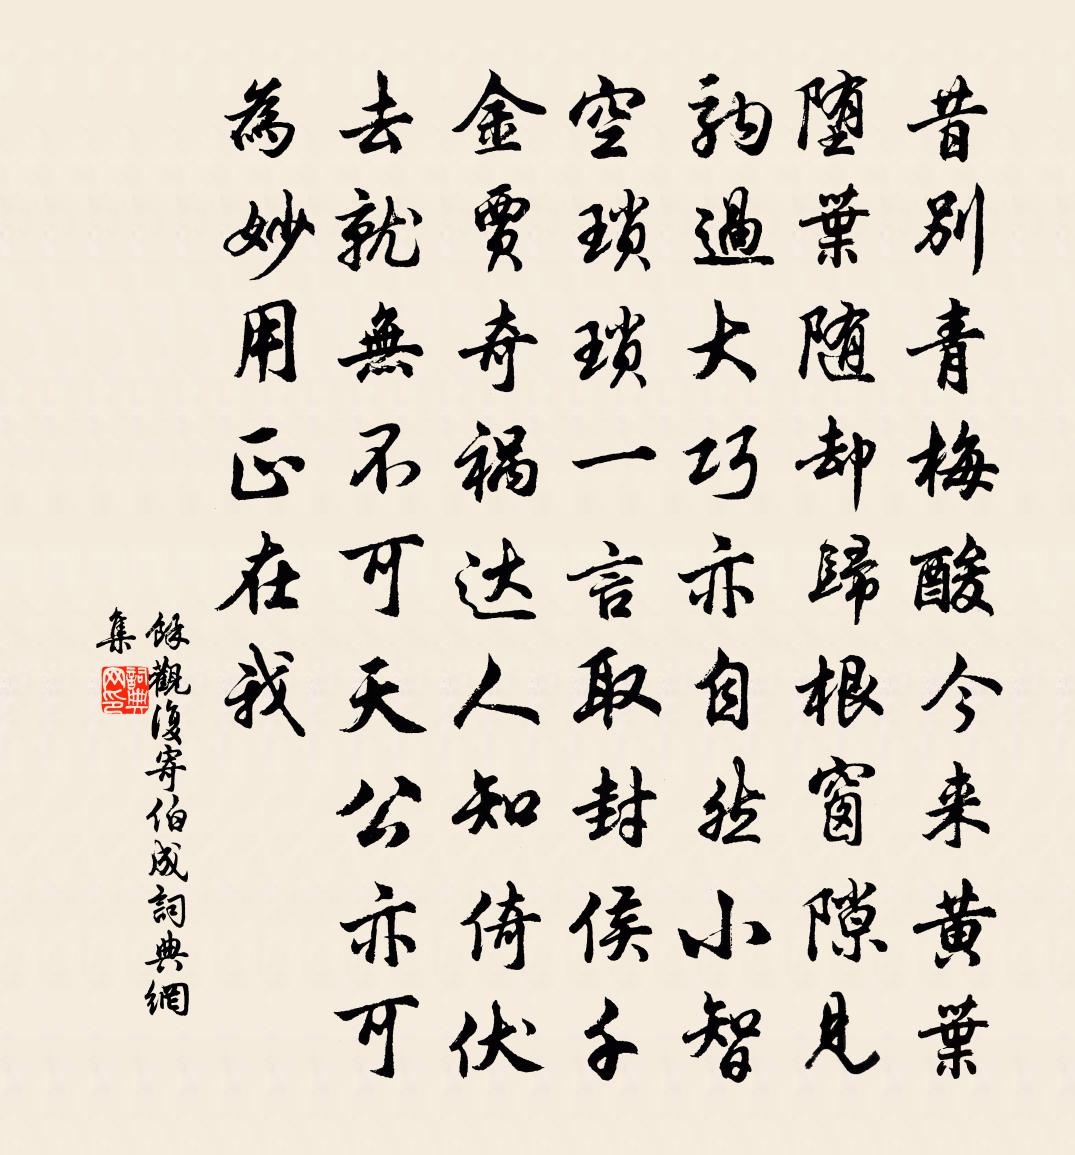 昔別青梅酸今来黄葉
堕葉随却歸根窗隙見
駒過大巧亦自然小智
空瑣瑣一言取封侯千
金賈奇禍达人知倚伏
去就無不可天公亦可
為妙用正在我
餘觀復寄伯成詞典網
集
詞典网印